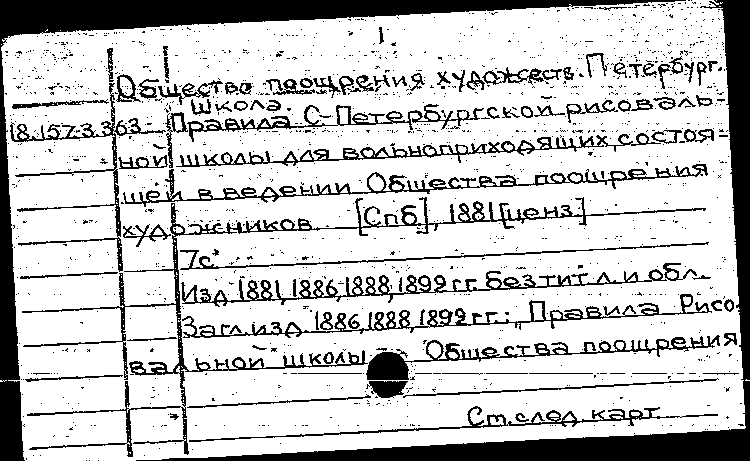 1
Общество поощрения художеств. Петербург.
Школа.
18.157.3.363- Правила С-Петербургской рисоваль-
ной школы для вольноприходящих, состоя-
щей в ведении Общества поощрения
художников. [Спб], 1881 [ценз.]
7с.
Изд. 1881, 1886, 1888, 1892 гг. без тит. л. и обл.
Загл. изд. 1886, 1888, 1892 гг.: „Правила Рисо-
вальной школы Общества поощрения
См. след. карт.